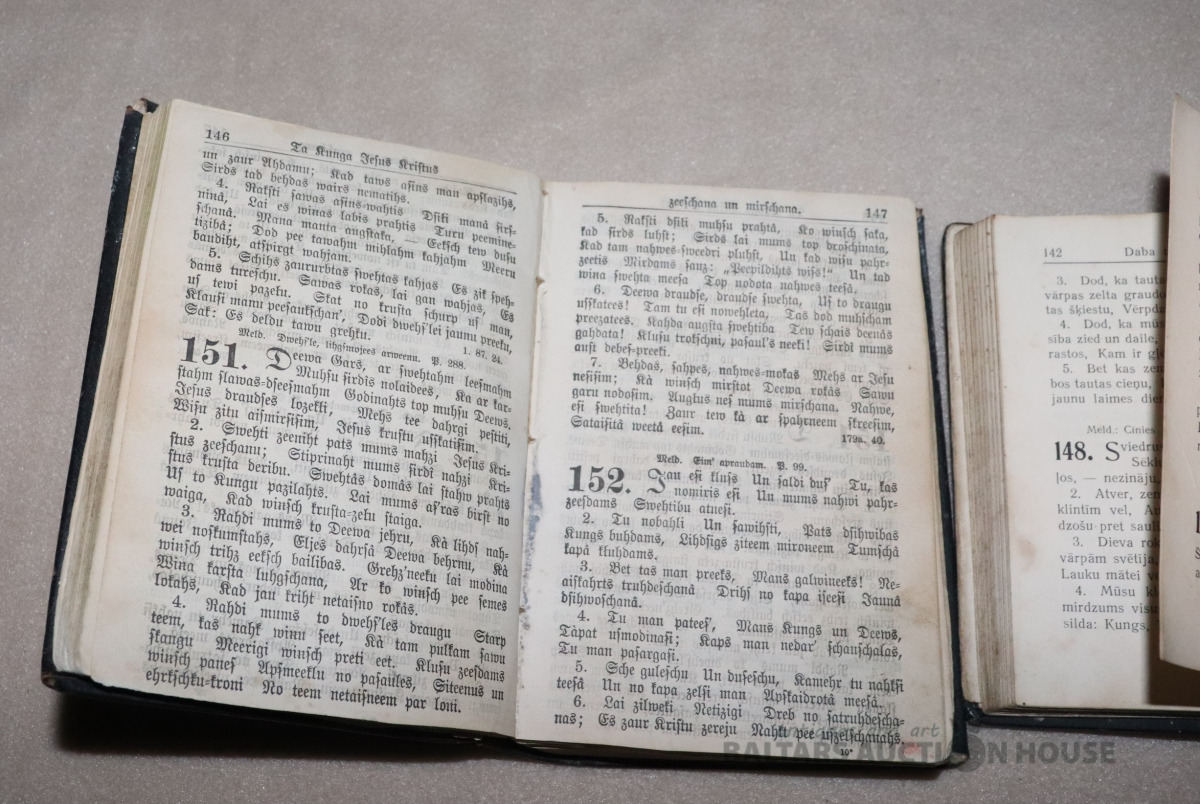 146
Ta Kunga Jesus Kristus
un zaur Ahdamu; Kad taws asins man apslazihs,
Sirds tad behdas wairs nematihs.
4. Raksti sawas asins-wahtis Dsili manâ sirs-
ninâ, Lai es winas labis prahtis Turu peemine-
schanâ. Mana manta augstaka, — Eeksch tew dusu
tizibâ; Dod pee tawahm mihlahm kahjahm Meeru
baudiht, atspirgt wahjam.
5. Schihs zaururbtas swehtas kahjas Es zik speh-
dams tureschu. Sawas rokas, lai gan wahjas, Es
us tewi pazelu. Skat no krusta schurp us man,
Klausi manu peesaukschan', Dodi dwehs'lei jaunu preeku,
Sak: Es deldu tawu grehku. 1. 87. 24.
Meld. Dwehs'le, lihgsmojees arweenu. P. 288.
151. Deewa Gars, ar swehtahm leesmahm
Muhsu sirdis nolaidees, Ka ar kar-
stahm slawas-dseesmahm Godinahts top muhsu Deews.
Jesus draudses lozekli, Mehs tee dahrgi pestiti,
Wisu zitu aismirsisim, Jesus krustu usskatisim.
2. Swehti zeeniht pats mums mahzi Jesus Kri-
stus zeeschanu; Stiprinaht mums sirdi nahzi Kri-
stus krusta deribu. Swehtâs domâs lai stahw prahts
Us to Kungu pazilahts. Lai mums as'ras birst no
waiga, Kad winsch krusta-zelu staiga.
3. Rahdi mums to Deewa jehru, Kà lihds nah-
wei noskumstahs, Eljes dahrsâ Deewa behrnu, Kà
winsch trihz eeksch bailibas. Grehz'neeku lai modina
Wina karsta luhgschana, Ar ko winsch pee semes
lokahs, Kad jau kriht netaisno rokâs.
4. Rahdi mums to dwehs'les draugu Starp
teem, kas nahk winu seet, Kà tam pulkam sawu
skangu Meerigi winsch preti eet. Klusu zeesdams
winsch panes' Apsmeeklu no pasaules, Siteenus un
ehrkschku-kroni No teem netaisneem par loni.
zeeschana un mirschana.
147
5. Raksti dsili muhsu prahtâ, Ko winsch saka,
kad sirds luhst; Sirds lai mums top droschinata,
Kad tam nahwes-sweedri pluhst, Un kad wisu pahr-
zeetis Mirdams sauz: „Peepildihts wiss!“ Un tad
wina swehta meesa Top nodota nahwes teesâ.
6. Deewa draudse, draudse swehta, Us to draugu
usskatees! Tam tu esi nowehleta, Tas dod muhscham
preezatees. Kahda augsta swehtiba Tew schais deenâs
gahdata! Klusu trokschni, pasaul's neeki! Sirdî mums
aust debes-preeki.
7. Behdas, sahpes, nahwes-mokas Mehs ar Jesu
nesisim; Kà winsch mirstot Deewa rokâs Sawu
garu nodosim. Augtus nes mums mirschana. Nahwe,
esi swehtita! Zaur tew kà ar spahrneem skreesim,
Sataisitâ weetâ eesim. 179a. 40.
Meld. Eim' apraudam. P. 99.
152. Jau esi kluss Un saldi dus' Tu, kas
nomiris esi Un mums nahwî pahr-
zeesdams Swehtibu atnesi.
2. Tu nobahli Un sawihsti, Pats dsihwibas
Kungs buhdams, Lihdsigs ziteem mironeem Tumschâ
kapâ kluhdams.
3. Bet tas man preeks, Mans galwineeks! Ne-
aiskahrts truhdeschanâ Drihs no kapa iseesi Jaunâ
dsihwoschanâ.
4. Tu man patees', Mans Kungs un Deews,
Tàpat usmodinasi; Kaps man nedar' schauschalas,
Tu man pasargasi.
5. Sche guleschu Un duseschu, Kamehr tu nahksi
teesâ Un no kapa zelsi man Apskaidrotâ meesâ.
6. Lai zilweki Netizigi Dreb no satruhdescha-
nas; Es zaur Kristu zereju Nahkt pee uszelschanahs.
10*
142 Daba
3. Dod, ka tauta
vārpas zelta graudo
tas šķiestu, Vērpda
4. Dod, ka mūs
sība zied un daile,
rastos, Kam ir gle
5. Bet kas zem
bos tautas cieņu,
jaunu laimes dien
Meld.: Cinies
148. Sviedru
Sēkl
ļos, — nezināju,
2. Atver, zem
klintīm vel, Au
dzošu pret sauli
3. Dieva rok
vārpām svētīja,
Lauku mātei v
4. Mūsu k
mirdzums visu
silda: Kungs,
antique books art
BALTARS AUCTION HOUSE